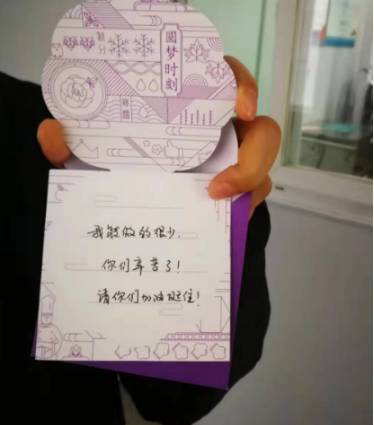 圆梦时刻
我能做的很少，
你们辛苦了！
请你们加油挺住！